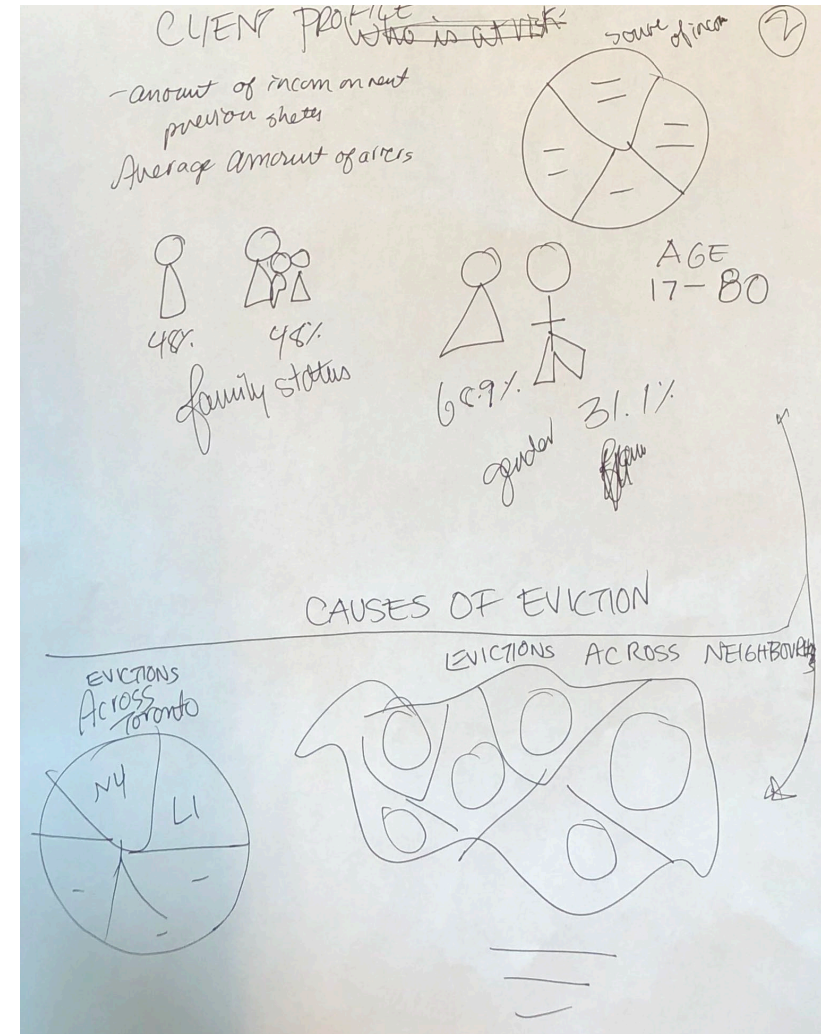 CLIENT PROFILE
Who is at risk
source of incom
2
- amount of incom on rent
previou sheter
Average amount of arrers
48%
48%
family status
68.9%
31.1%
gender
AGE
17-80
CAUSES OF EVICTION
EVICTIONS
Across
Toronto
N4
L1
EVICTIONS ACROSS NEIGHBOURH